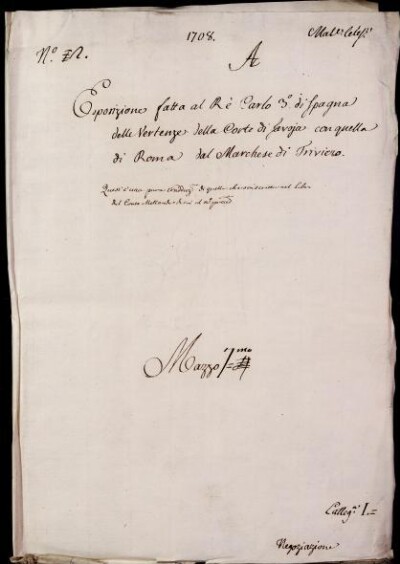 1708.
Mat.e Eccles.e
N.o
A
Esposizione fatta al Rè Carlo 3.o di Spagna
delle Vertenze della Corte di Savoja con quella
di Roma dal Marchese di Triviero.
Questa è una pura di quella che esistente nel libro
del Conte
Mazzo 1.mo
Categ.a I.=
Negoziazione